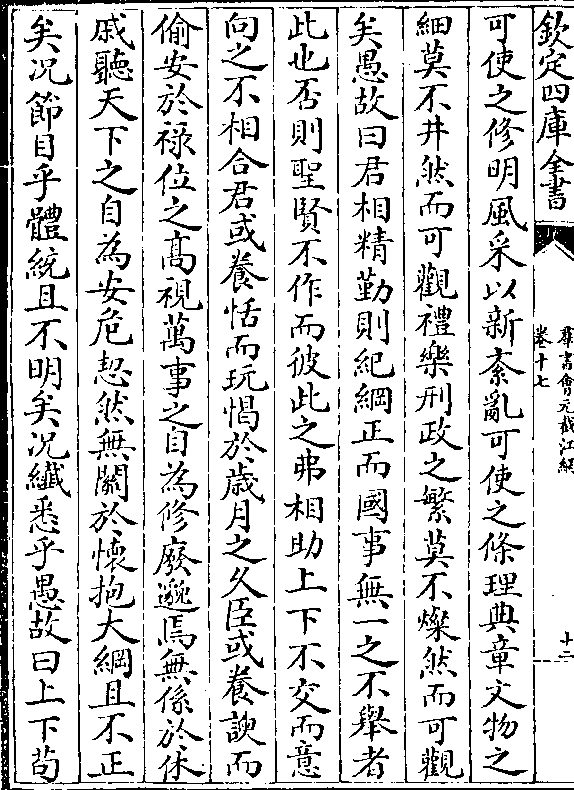 欽定四庫全書
羣書會元截江網
卷十七
十二
可使之修明風采以新紊亂可使之條理典章文物之
細莫不井然而可觀禮樂刑政之繁莫不燦然而可觀
矣愚故曰君相精勤則紀綱正而國事無一之不舉者
此也否則聖賢不作而彼此之弗相助上下不交而意
向之不相合君或養恬而玩愒於歲月之久臣或養諛而
偷安於祿位之髙視萬事之自為修廢邈焉無係於休
戚聽天下之自為安危恝然無關於懷抱大綱且不正
矣况節目乎體統且不明矣况纖悉乎愚故曰上下苟